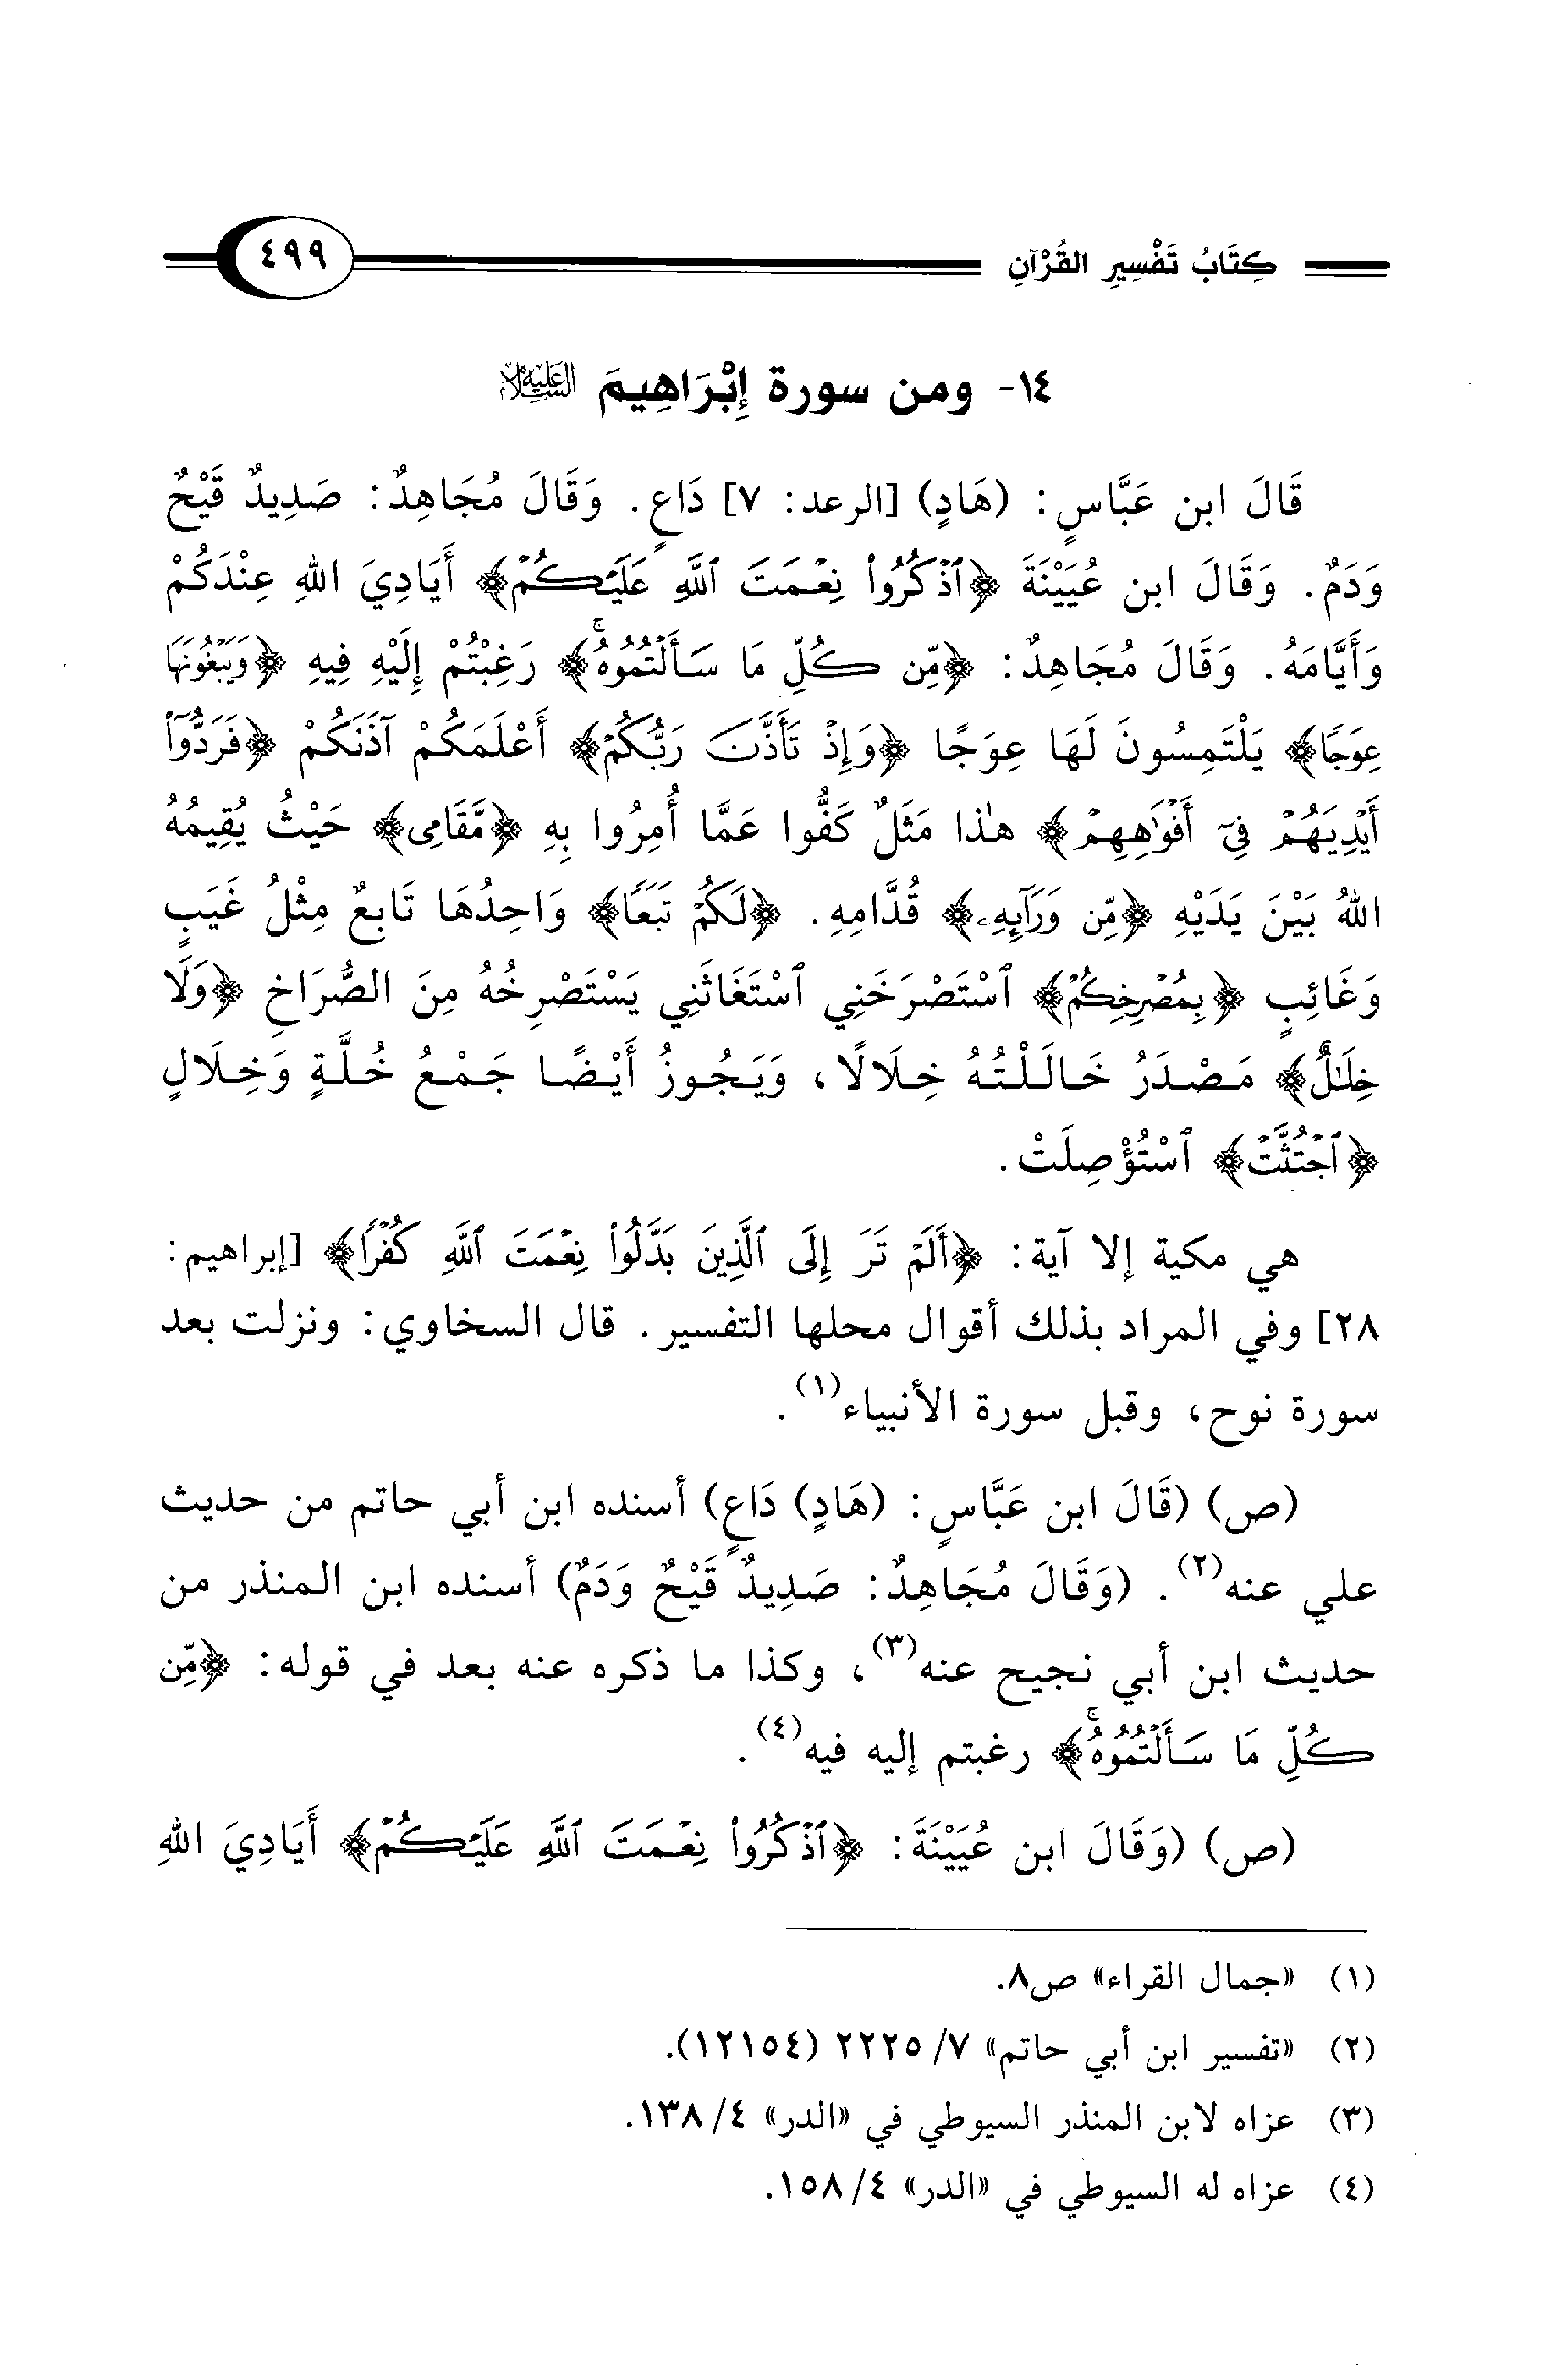 كِتَابُ تَفْسِيرِ القُرْآنِ ٤٩٩
١٤- ومن سورة إِبْرَاهِيمَ عليه السلام
قَالَ ابن عَبَّاسٍ: (هَادٍ) [الرعد: ٧] دَاعٍ. وَقَالَ مُجَاهِدٌ: صَدِيدٌ قَيْحٌ
وَدَمٌ. وَقَالَ ابن عُيَيْنَةَ ﴿ٱذْكُرُوا۟ نِعْمَتَ ٱللَّهِ عَلَيْكُمْ﴾ أَيَادِيَ اللهِ عِنْدَكُمْ
وَأَيَّامَهُ. وَقَالَ مُجَاهِدٌ: ﴿مِّن كُلِّ مَا سَأَلْتُمُوهُ ۚ﴾ رَغِبْتُمْ إِلَيْهِ فِيهِ ﴿وَيَبْغُونَهَا
عِوَجًا﴾ يَلْتَمِسُونَ لَهَا عِوَجًا ﴿وَإِذْ تَأَذَّنَ رَبُّكُمْ﴾ أَعْلَمَكُمْ آذَنَكُمْ ﴿فَرَدُّوٓا۟
أَيْدِيَهُمْ فِىٓ أَفْوَٰهِهِمْ﴾ هذا مَثَلٌ كَفُّوا عَمَّا أُمِرُوا بِهِ ﴿مَّقَامِى﴾ حَيْثُ يُقِيمُهُ
اللهُ بَيْنَ يَدَيْهِ ﴿مِّن وَرَآئِهِۦ﴾ قُدَّامِهِ. ﴿لَكُمْ تَبَعًا﴾ وَاحِدُهَا تَابِعٌ مِثْلُ غَيَبٍ
وَغَائِبٍ ﴿بِمُصْرِخِكُمْ﴾ ٱسْتَصْرَخَنِي ٱسْتَغَاثَنِي يَسْتَصْرِخُهُ مِنَ الصُّرَاخِ ﴿وَلَا
خِلَٰلٌ﴾ مَصْدَرُ خَالَلْتُهُ خِلَالًا، وَيَجُوزُ أَيْضًا جَمْعُ خُلَّةٍ وَخِلَالٍ
﴿ٱجْتُثَّتْ﴾ ٱسْتُؤْصِلَتْ.
هي مكية إلا آية: ﴿أَلَمْ تَرَ إِلَى ٱلَّذِينَ بَدَّلُوا۟ نِعْمَتَ ٱللَّهِ كُفْرًا﴾ [إبراهيم:
٢٨] وفي المراد بذلك أقوال محلها التفسير. قال السخاوي: ونزلت بعد
سورة نوح، وقبل سورة الأنبياء(١).
(ص) (قَالَ ابن عَبَّاسٍ: (هَادٍ) دَاعٍ) أسنده ابن أبي حاتم من حديث
علي عنه(٢). (وَقَالَ مُجَاهِدٌ: صَدِيدٌ قَيْحٌ وَدَمٌ) أسنده ابن المنذر من
حديث ابن أبي نجيح عنه(٣)، وكذا ما ذكره عنه بعد في قوله: ﴿مِّن
كُلِّ مَا سَأَلْتُمُوهُ ۚ﴾ رغبتم إليه فيه(٤).
(ص) (وَقَالَ ابن عُيَيْنَةَ: ﴿ٱذْكُرُوا۟ نِعْمَتَ ٱللَّهِ عَلَيْكُمْ﴾ أَيَادِيَ اللهِ
(١) «جمال القراء» ص٨.
(٢) «تفسير ابن أبي حاتم» ٧/ ٢٢٢٥ (١٢١٥٤).
(٣) عزاه لابن المنذر السيوطي في «الدر» ٤/ ١٣٨.
(٤) عزاه له السيوطي في «الدر» ٤/ ١٥٨.